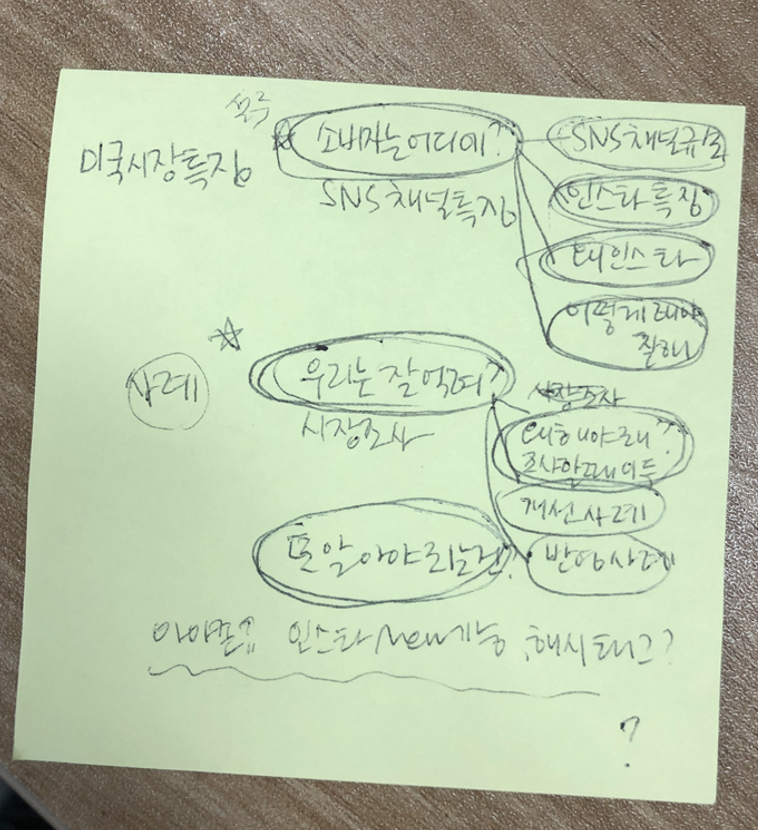 소비자는 어디에?
SNS 채널규모
미국시장특징
SNS 채널특징
인스타 특징
왜 인스타
어떻게 해야
잘하나
우리는 잘
사례
시장조사
시장조사
왜 해야 해?
조사할때 이득
개선사례
또 알아야
반영사례
인스타 New기능, 해시태그?
?